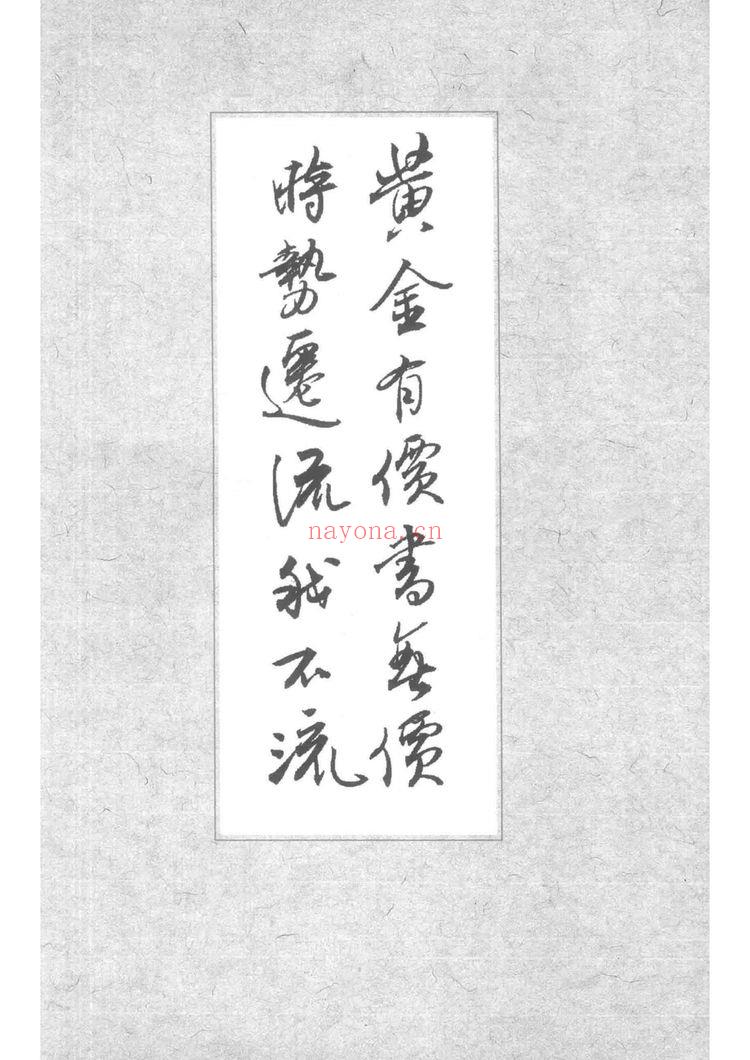 黄金有價書無價
時勢遷流我不流
nayona.cn